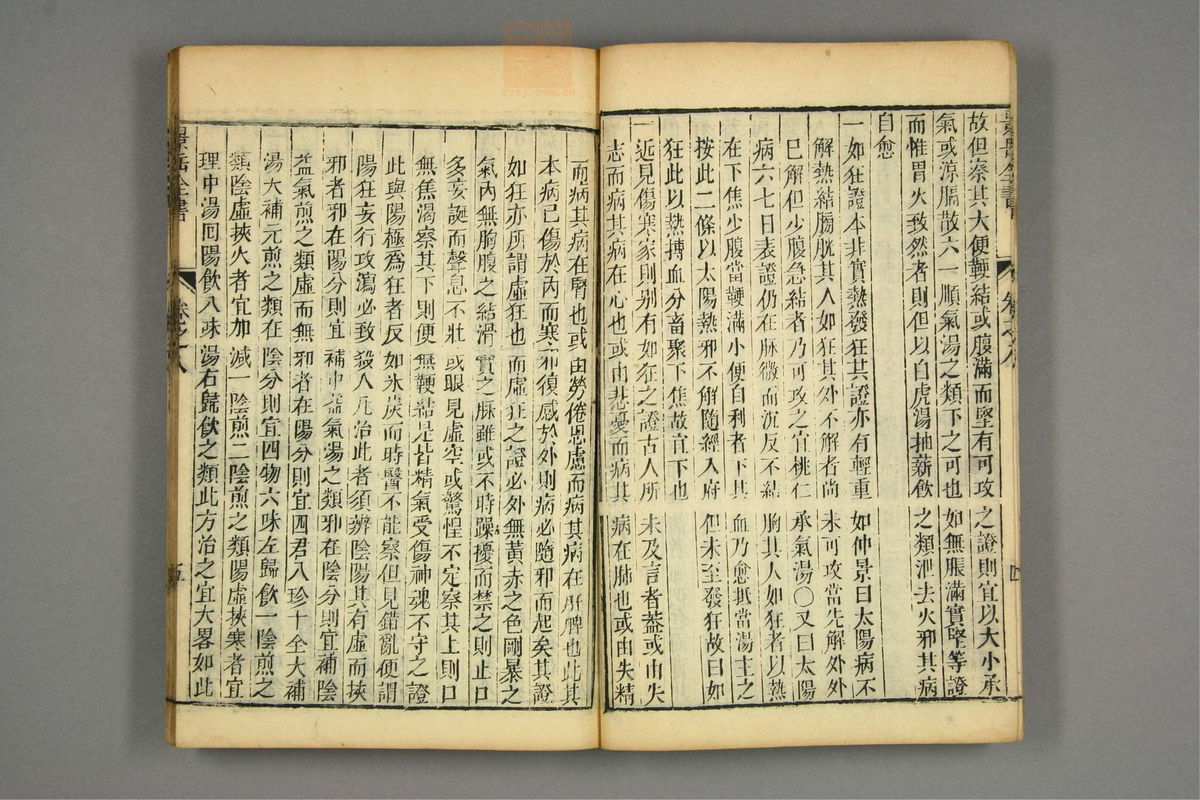 故但察其大便鞕結或腹滿而堅有可攻之證則宜以大小承
氣或涼膈散六一順氣湯之類下之可也如無脹滿實堅等證
而惟胃火致然者則但以白虎湯抽薪飲之類泄去火邪其病
自愈
一如狂證本非實熱發狂其證亦有輕重如仲景曰太陽病不
解熱結膀胱其人如狂其外不解者尚未可攻當先解外外
已解但少腹急結者乃可攻之宜桃仁承氣湯〇又曰太陽
病六七日表證仍在脉微而沉反不結胸其人如狂者以熱
在下焦少腹當鞕滿小便自利者下其血乃愈抵當湯主之
按此二條以太陽熱邪不解隨經入府但未至發狂故曰如
狂此以熱搏血分畜聚下焦故宜下也
一近見傷寒家則別有如狂之證古人所未及言者蓋或由失
志而病其病在心也或由悲憂而病其病在肺也或由失精
而病其病在腎也或由勞倦思慮而病其病在肝脾也此其
本病已傷於內而寒邪復感於外則病必隨邪而起矣其證
如狂亦所謂虛狂也而虛狂之證必外無黃赤之色剛暴之
氣內無胸腹之結滑實之脉雖或不時躁擾而禁之則止口
多妄誕而聲息不壯或眼見虛空或驚惶不定察其上則口
無焦渴察其下則便無鞕結是皆精氣受傷神魂不守之證
此與陽極為狂者反如氷炭而時醫不能察但見錯亂便謂
陽狂妄行攻瀉必致殺人凡治此者須辨陰陽其有虛而挾
邪者邪在陽分則宜補中益氣湯之類邪在陰分則宜補陰
益氣煎之類虛而無邪者在陽分則宜四君八珍十全大補
湯大補元煎之類在陰分則宜四物六味左歸飲一陰煎之
類陰虛挾火者宜加減一陰煎二陰煎之類陽虛挾寒者宜
理中湯回陽飲八味湯右歸飲之類此方治之宜大畧如此
景岳全書
卷之八
五
景岳全書
卷之八
四